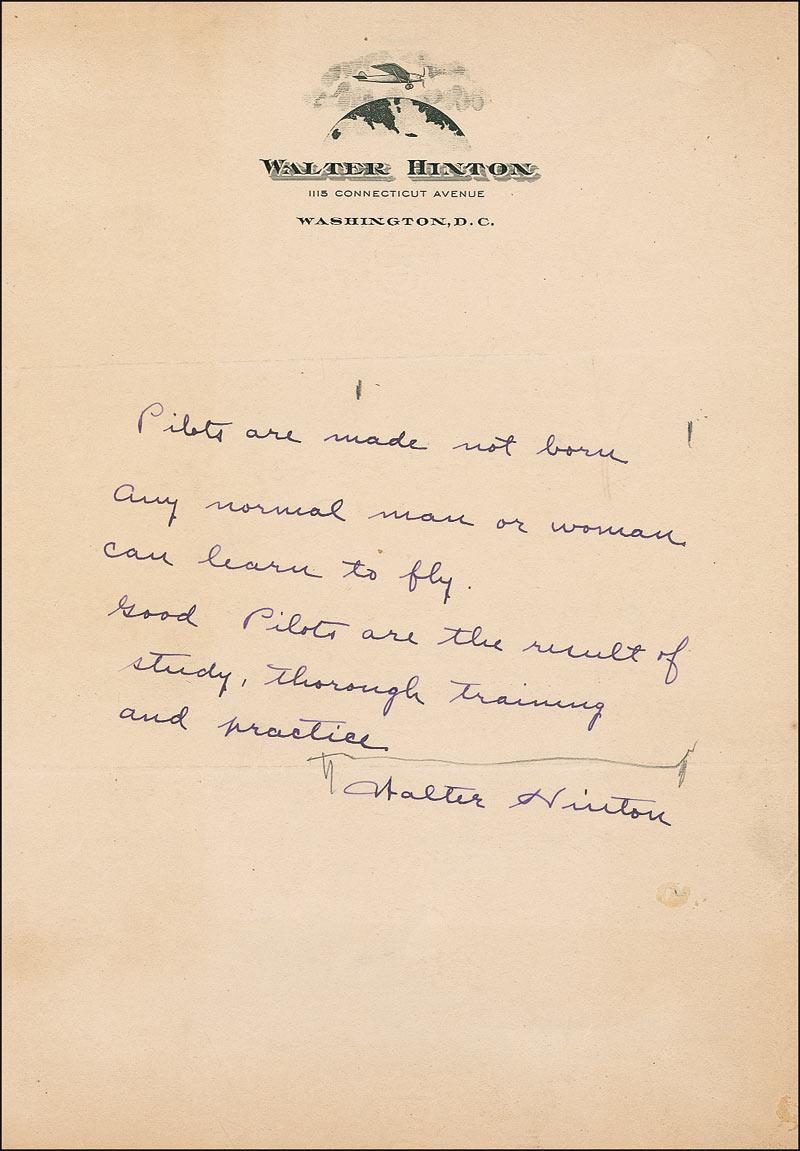 WALTER HINTON
1115 CONNECTICUT AVENUE
WASHINGTON, D.C.
Pilots are made not born
Any normal man or woman
can learn to fly.
Good Pilots are the result of
study, thorough training
and practice
Walter Hinton